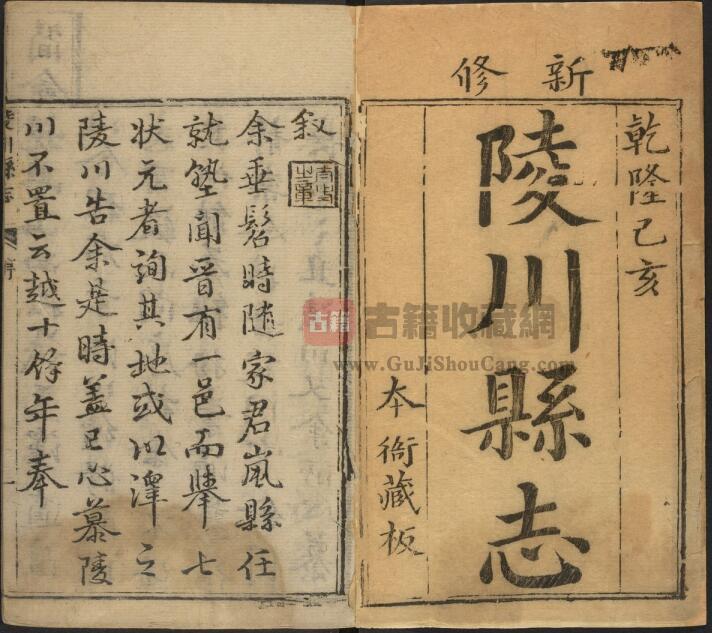 新修
乾隆己亥
陵川縣志
本衙藏板
叙
余垂髫時隨家君嵐縣任
就塾聞晋有一邑而舉七
狀元者詢其地或以澤之
陵川告余是時葢已心慕陵
川不置云越十餘年奉
陵川縣志
序
古籍
古籍收藏網
www.GuJiShouCang.com